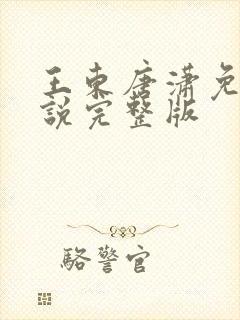 王东唐潇免
説完整版
駱警官